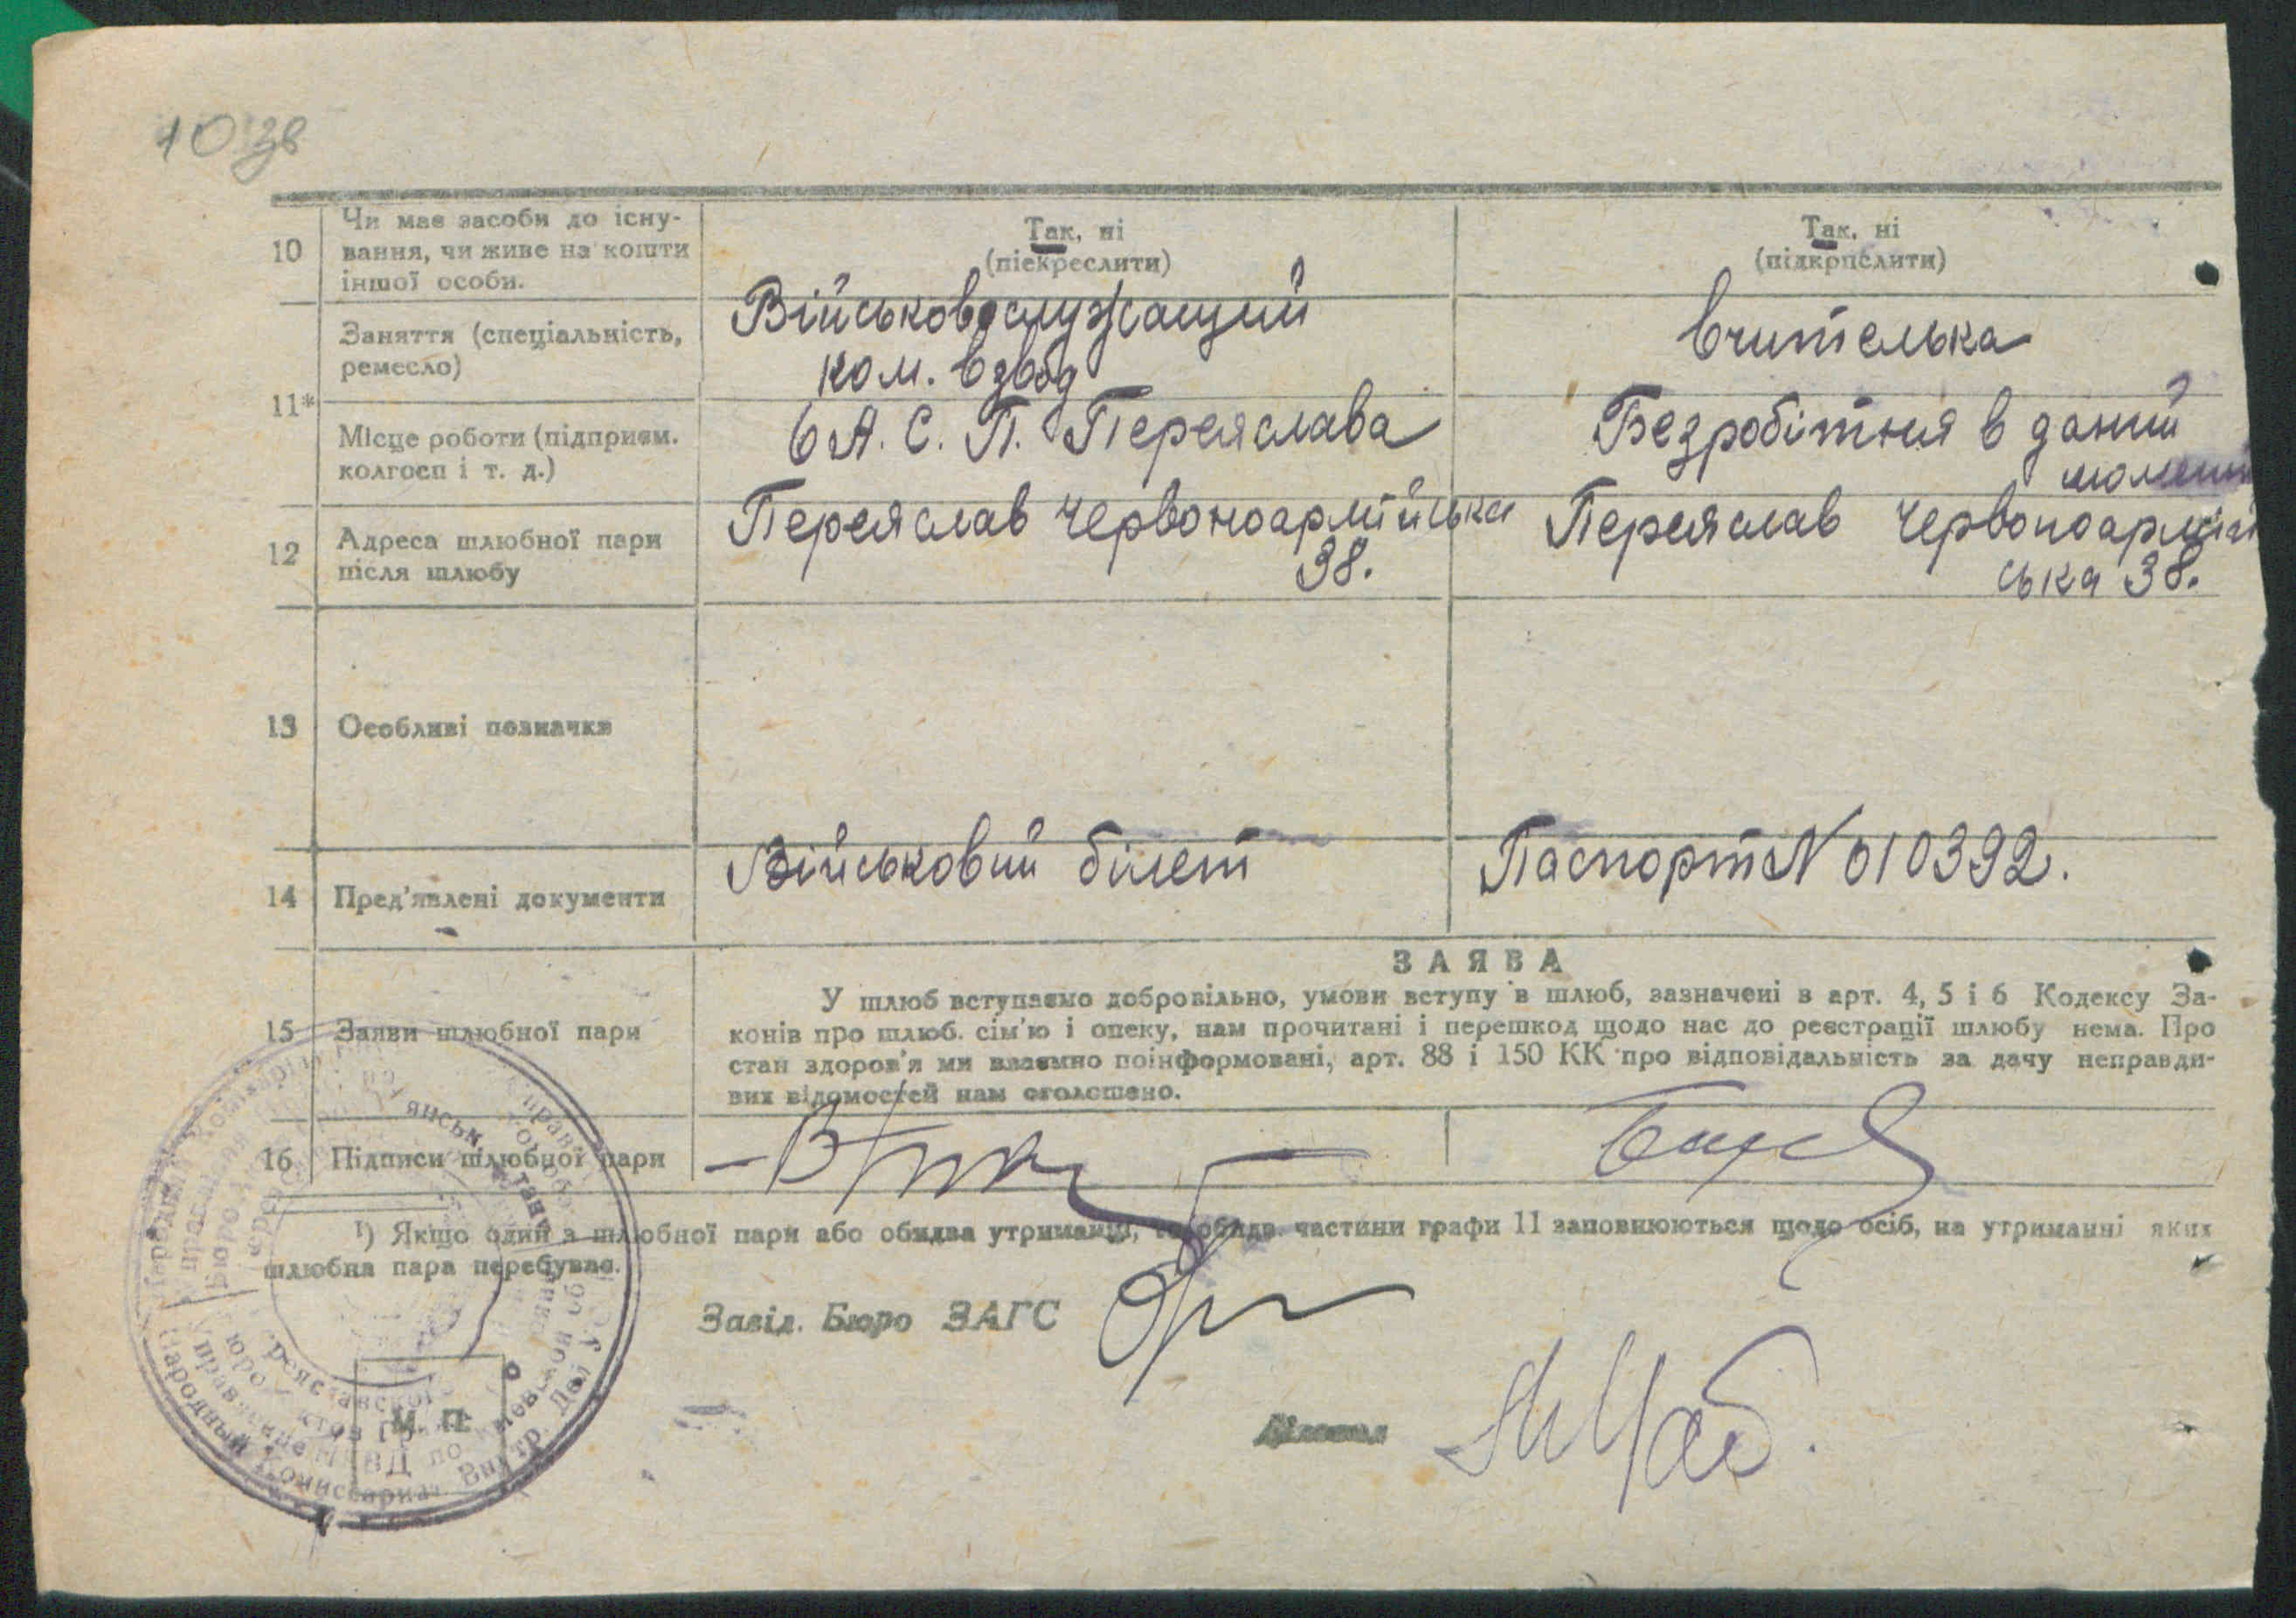 10 зв
10
Чи має засоби до існу-
вання, чи живе на кошти
іншої особи.
Так, ні
(піекреслити)
Так, ні
(підкрпслити)
11*
Заняття (спеціальність,
ремесло)
Військовослужащий
ком. взвод
вчителька
Місце роботи (підприєм.
колгосп і т. д.)
6 А. С. П. Переяслава
Безробітня в даний
момент
12
Адреса шлюбної пари
після шлюбу
Переяслав Червоноармійська
38.
Переяслав Червоноармій
ська 38.
13
Особливі позначки
14
Пред'явлені документи
Військовий білет
Паспорт N 010392.
15
Заяви шлюбної пари
ЗАЯВА
У шлюб вступаємо добровільно, умови вступу в шлюб, зазначені в арт. 4, 5 і 6 Кодексу За-
конів про шлюб. сім'ю і опеку, нам прочитані і перешкод щодо нас до реєстрації шлюбу нема. Про
стан здоров'я ми взаємно поінформовані, арт. 88 і 150 КК про відповідальність за дачу неправди-
вих відомостей нам оголошено.
16
Підписи шлюбної пари
¹) Якщо один з шлюбної пари або обидва утриманці, то обидві частини графи 11 заповнюються щодо осіб, на утриманні яких
шлюбна пара перебуває.
Завід. Бюро ЗАГС
Діловод
М. П.
Народный Комиссариат Внутр. Дел